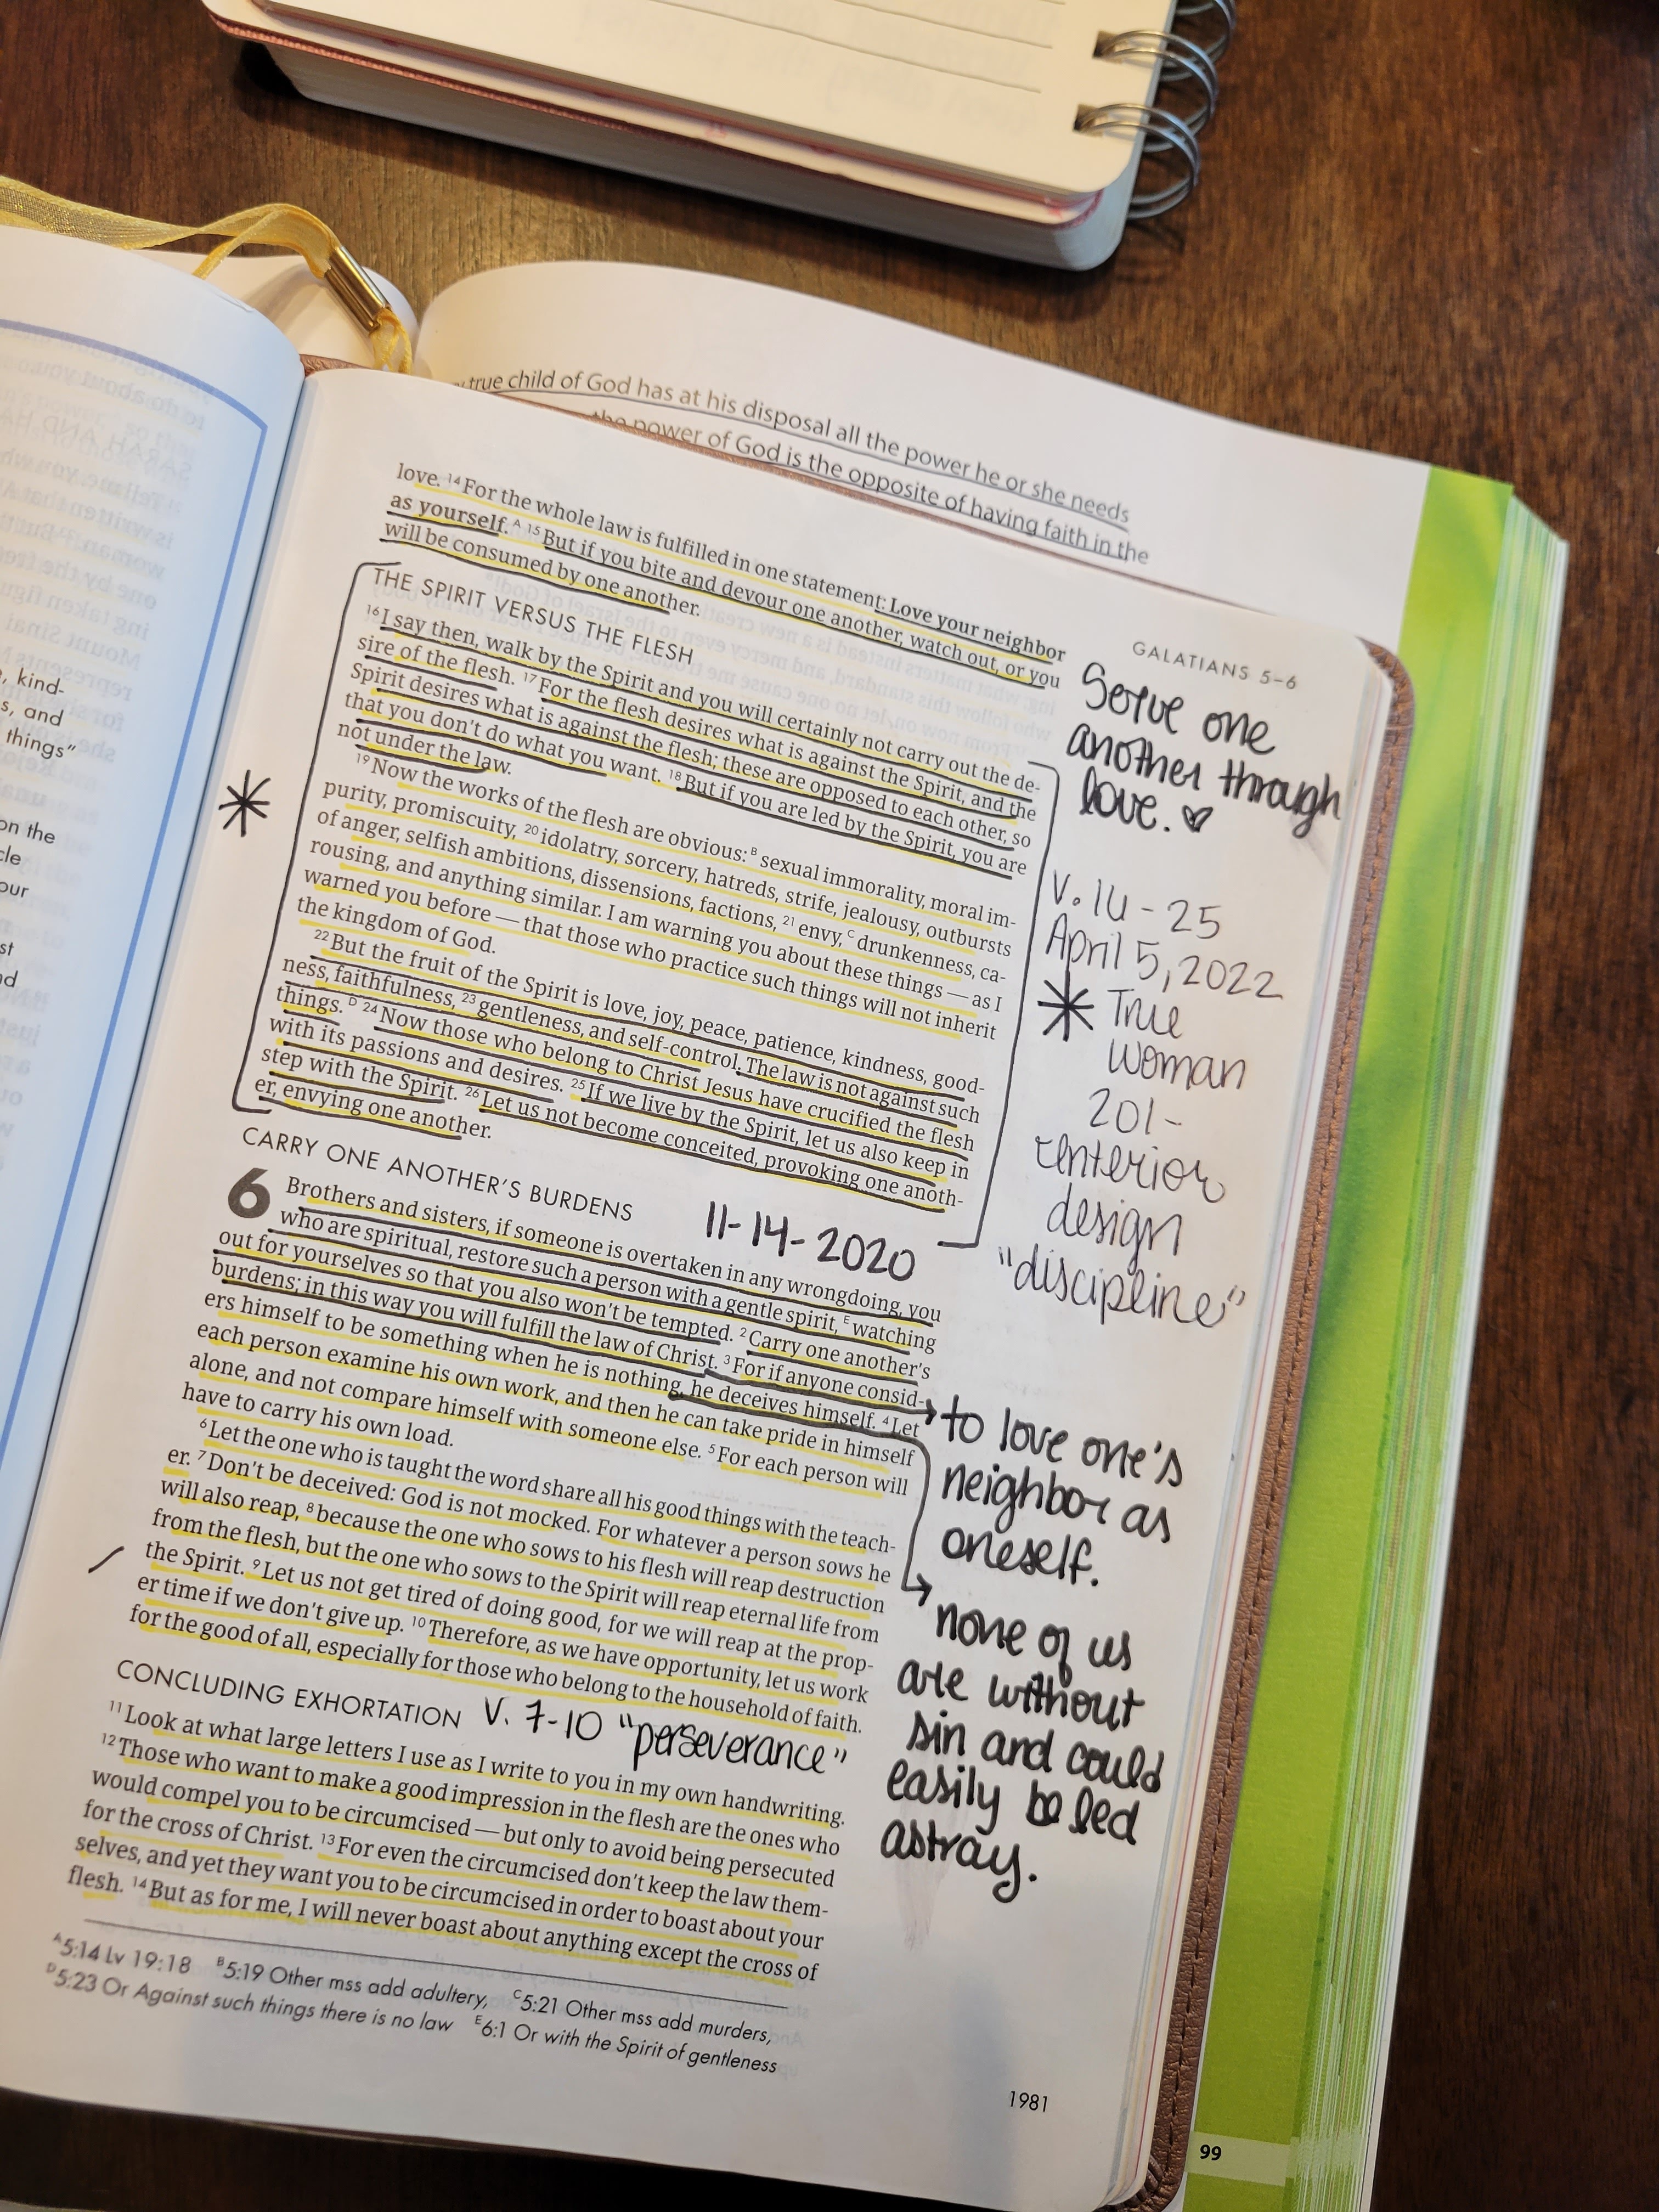 true child of God has at his disposal all the power he or she needs
the power of God is the opposite of having faith in the
GALATIANS 5–6
love. 14 For the whole law is fulfilled in one statement: Love your neighbor
as yourself. A 15 But if you bite and devour one another, watch out, or you
will be consumed by one another.
THE SPIRIT VERSUS THE FLESH
16 I say then, walk by the Spirit and you will certainly not carry out the de-
sire of the flesh. 17 For the flesh desires what is against the Spirit, and the
Spirit desires what is against the flesh; these are opposed to each other, so
that you don't do what you want. 18 But if you are led by the Spirit, you are
not under the law.
19 Now the works of the flesh are obvious: B sexual immorality, moral im-
purity, promiscuity, 20 idolatry, sorcery, hatreds, strife, jealousy, outbursts
of anger, selfish ambitions, dissensions, factions, 21 envy, C drunkenness, ca-
rousing, and anything similar. I am warning you about these things — as I
warned you before — that those who practice such things will not inherit
the kingdom of God.
22 But the fruit of the Spirit is love, joy, peace, patience, kindness, good-
ness, faithfulness, 23 gentleness, and self-control. The law is not against such
things. D 24 Now those who belong to Christ Jesus have crucified the flesh
with its passions and desires. 25 If we live by the Spirit, let us also keep in
step with the Spirit. 26 Let us not become conceited, provoking one anoth-
er, envying one another.
CARRY ONE ANOTHER'S BURDENS
11-14-2020
6 Brothers and sisters, if someone is overtaken in any wrongdoing, you
who are spiritual, restore such a person with a gentle spirit, E watching
out for yourselves so that you also won't be tempted. 2 Carry one another's
burdens; in this way you will fulfill the law of Christ. 3 For if anyone consid-
ers himself to be something when he is nothing, he deceives himself. 4 Let
each person examine his own work, and then he can take pride in himself
alone, and not compare himself with someone else. 5 For each person will
have to carry his own load.
6 Let the one who is taught the word share all his good things with the teach-
er. 7 Don't be deceived: God is not mocked. For whatever a person sows he
will also reap, 8 because the one who sows to his flesh will reap destruction
from the flesh, but the one who sows to the Spirit will reap eternal life from
the Spirit. 9 Let us not get tired of doing good, for we will reap at the prop-
er time if we don't give up. 10 Therefore, as we have opportunity, let us work
for the good of all, especially for those who belong to the household of faith.
CONCLUDING EXHORTATION
V. 7-10 "perseverance"
11 Look at what large letters I use as I write to you in my own handwriting.
12 Those who want to make a good impression in the flesh are the ones who
would compel you to be circumcised — but only to avoid being persecuted
for the cross of Christ. 13 For even the circumcised don't keep the law them-
selves, and yet they want you to be circumcised in order to boast about your
flesh. 14 But as for me, I will never boast about anything except the cross of
A 5:14 Lv 19:18 B 5:19 Other mss add adultery, C 5:21 Other mss add murders,
D 5:23 Or Against such things there is no law E 6:1 Or with the Spirit of gentleness
1981
Serve one
another through
love.
V. 16-25
April 5, 2022
True
Woman
201-
interior
design
"discipline"
to love one's
neighbor as
oneself.
none of us
are without
sin and could
easily be led
astray.
kind-
s, and
things"
on the
cle
our
st
nd
99